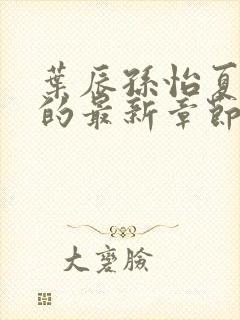 葉辰孫怡夏
的最新章節
大麥臉